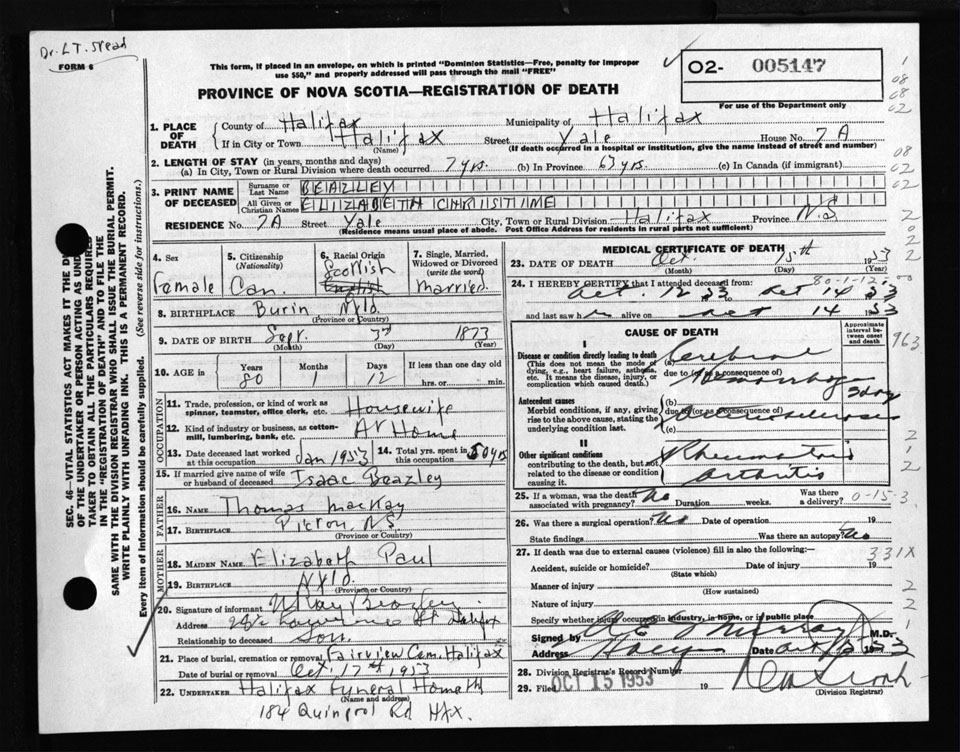 Dr. L T. Mead
FORM 6
This form, if placed in an envelope, on which is printed "Dominion Statistics—Free, penalty for improper
use $50," and properly addressed will pass through the mail "FREE"
PROVINCE OF NOVA SCOTIA—REGISTRATION OF DEATH
O2- 005147
For use of the Department only
1. PLACE OF DEATH
County of Halifax Municipality of Halifax
If in City or Town Halifax (Name) Street Yale House No. 7A
(If death occurred in a hospital or institution, give the name instead of street and number)
2. LENGTH OF STAY (in years, months and days)
(a) In City, Town or Rural Division where death occurred 7 yrs. (b) In Province 63 yrs. (c) In Canada (if immigrant)
3. PRINT NAME OF DECEASED
Surname or Last Name BEAZLEY
All Given or Christian Names ELIZABETH CHRISTINE
RESIDENCE No. 7A Street Yale City, Town or Rural Division Halifax Province N.S
(Residence means usual place of abode. Post Office Address for residents in rural parts not sufficient)
4. Sex
Female
5. Citizenship (Nationality)
Can.
6. Racial Origin
Scottish
English
7. Single, Married, Widowed or Divorced (write the word)
Married.
8. BIRTHPLACE Burin Nfld
(Province or Country)
9. DATE OF BIRTH Sept. 3rd 1873
(Month) (Day) (Year)
10. AGE in Years 80 Months 1 Days 12 If less than one day old hrs. or min.
OCCUPATION
11. Trade, profession, or kind of work as spinner, teamster, office clerk, etc. Housewife
12. Kind of industry or business, as cotton-mill, lumbering, bank, etc. At Home
13. Date deceased last worked at this occupation Jan 1953
14. Total yrs. spent in this occupation 50 yrs
15. If married give name of wife or husband of deceased Isaac Beazley
FATHER
16. NAME Thomas MacKay
17. BIRTHPLACE Pictou, N.S.
(Province or Country)
MOTHER
18. MAIDEN NAME Elizabeth Paul
19. BIRTHPLACE Nfld.
(Province or Country)
20. Signature of informant Beazley
Address St Halifax
Relationship to deceased Son.
21. Place of burial, cremation or removal Fairview Cem. Halifax
Date of burial or removal Oct. 17th 1953
22. UNDERTAKER Halifax Funeral Home
(Name and address)
184 Quinpool Rd Hfx.
MEDICAL CERTIFICATE OF DEATH
23. DATE OF DEATH Oct. 15th 1953
(Month) (Day) (Year)
80-1-12.00
24. I HEREBY CERTIFY that I attended deceased from:
Oct. 12 53 Oct 14 53
and last saw h alive on Oct 14 1953
CAUSE OF DEATH
Approximate interval between onset and death
I
Disease or condition directly leading to death
(This does not mean the mode of dying, e.g., heart failure, asthma, etc. It means the disease, injury, or complication which caused death.)
(a) Cerebral
due to (or as a consequence of)
Hemorrhage
3 day
Antecedent causes
Morbid conditions, if any, giving rise to the above cause, stating the underlying condition last.
(b)
due to (or as a consequence of)
(c)
II
Other significant conditions
contributing to the death, but not related to the disease or condition causing it.
Rheumatoid
Arthritis
25. If a woman, was the death associated with pregnancy? No Duration weeks. Was there a delivery?
0-15-3
26. Was there a surgical operation? No Date of operation 19
State findings Was there an autopsy? No
27. If death was due to external causes (violence) fill in also the following:—
331X
Accident, suicide or homicide? Date of injury 19
(State which)
Manner of injury
(How sustained)
Nature of injury
Specify whether injury occurred in industry, in home, or in public place
Signed by Murray M.D.
Address Date 1953
28. Division Registrar's Record Number
29. Filed OCT 15 1953 19
(Division Registrar)
SEC. 46—VITAL STATISTICS ACT MAKES IT THE
OF THE UNDERTAKER OR PERSON ACTING AS
TAKER TO OBTAIN ALL THE PARTICULARS REQUIRED
IN THE "REGISTRATION OF DEATH" AND TO FILE THE
SAME WITH THE DIVISION REGISTRAR WHO SHALL ISSUE THE BURIAL PERMIT.
WRITE PLAINLY WITH UNFADING INK. THIS IS A PERMANENT RECORD.
Every item of information should be carefully supplied. (See reverse side for instructions.)
1
08
08
02
08
02
02
2
0
2
2
963
2
1
2
2
2
1